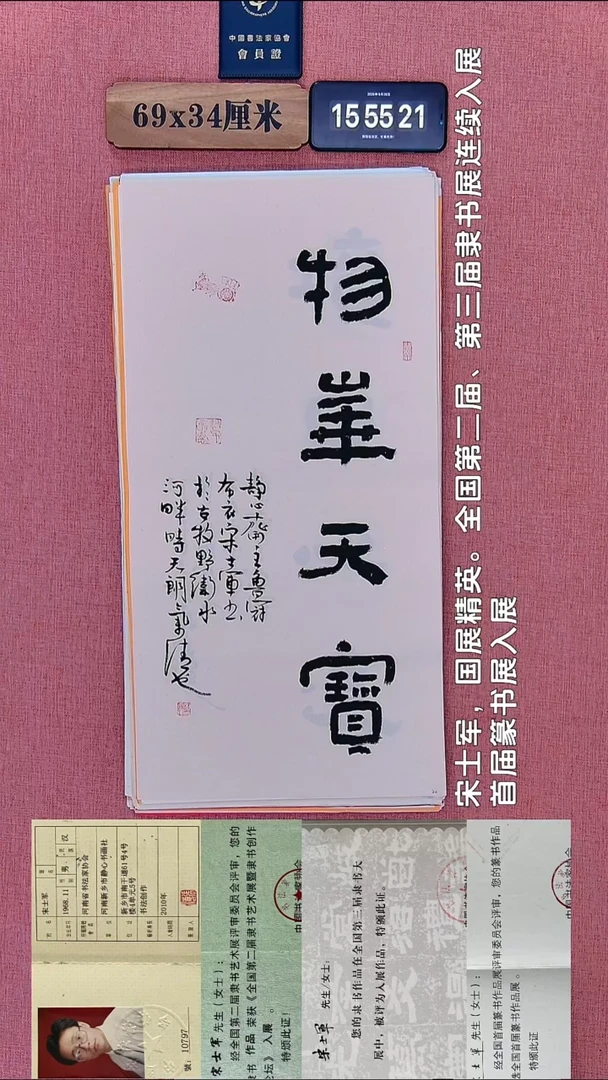 中國書法家協會
會員證
69x34厘米
15 55 21
物華天寶
静心齋主魯冠
布衣宋士軍書
於古牧野衛水
河畔時天朗氣清也
宋士军，国展精英。全国第二届、第三届隶书展连续入展
首届篆书展入展
宋士军
男
汉
1968.11
河南省书法家协会
河南新乡市静心书画社
新乡市南干道61号4号
楼4单元5号
书法创作
2010年
号：10797
宋士军 先生（女士）：
经全国第二届隶书艺术展评审委员会评审，您的
隶书 作品 荣获《全国第二届隶书艺术展暨隶书创作
论坛》 入展 。
特颁此证！
宋士军 先生/女士：
您的隶书作品在全国第三届隶书大
展中，被评为入展作品，特颁此证。
士军 先生（女士）：
经全国首届篆书作品展评审委员会评审，您的篆书作品
全国首届篆书作品展。
特颁此证